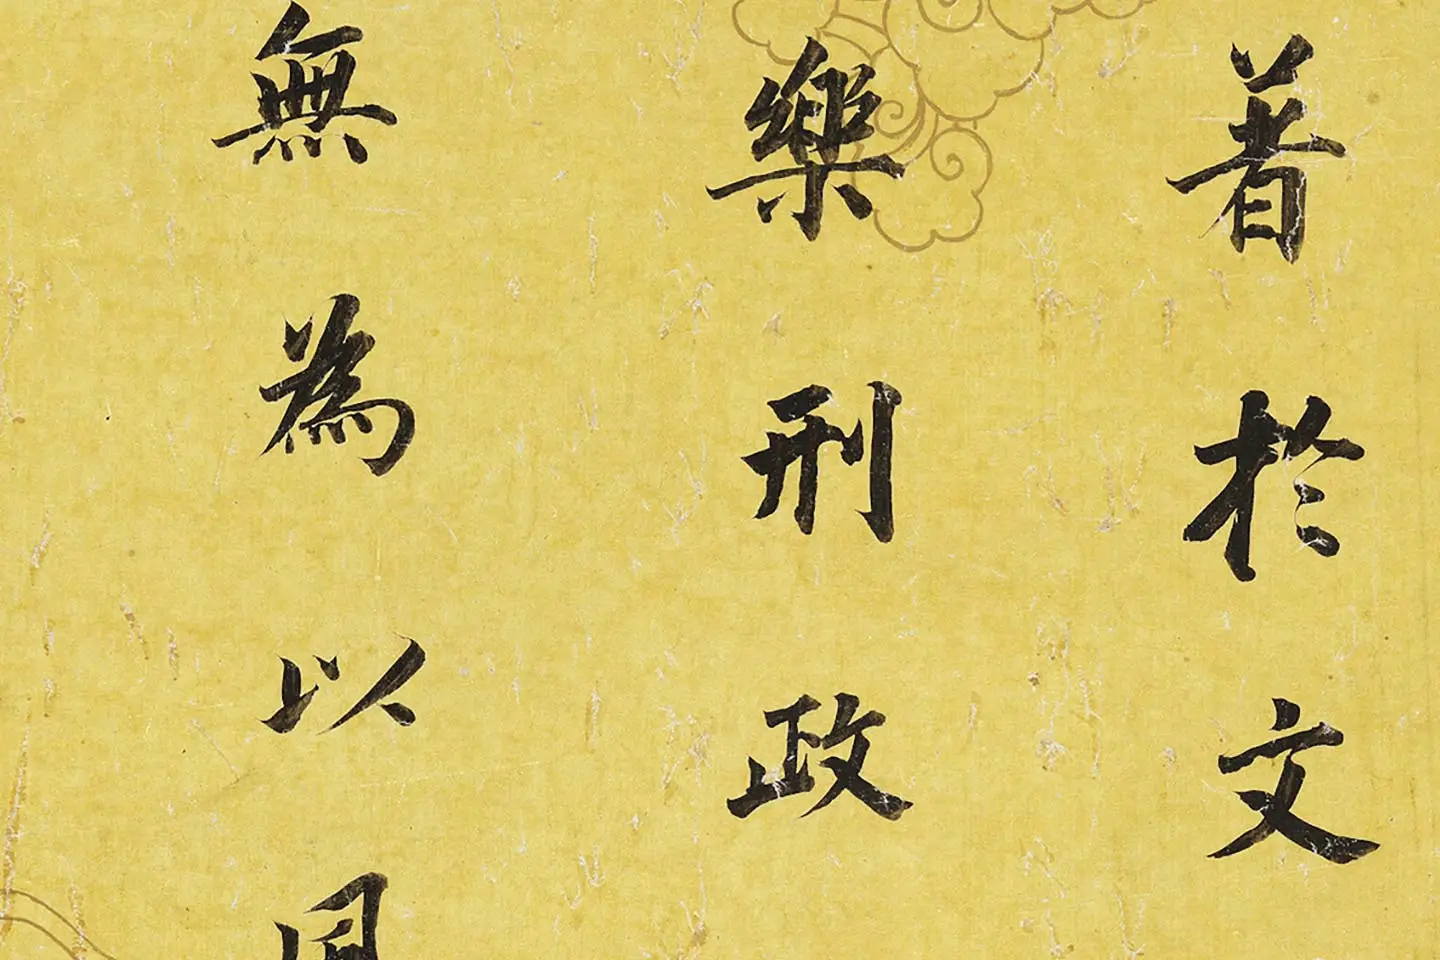 著於文
樂刑政
無為以